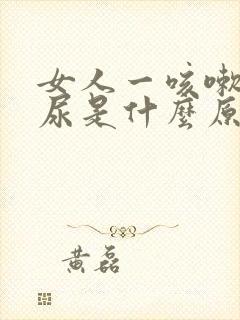 女人一咳嗽
尿是什麼原
黄磊